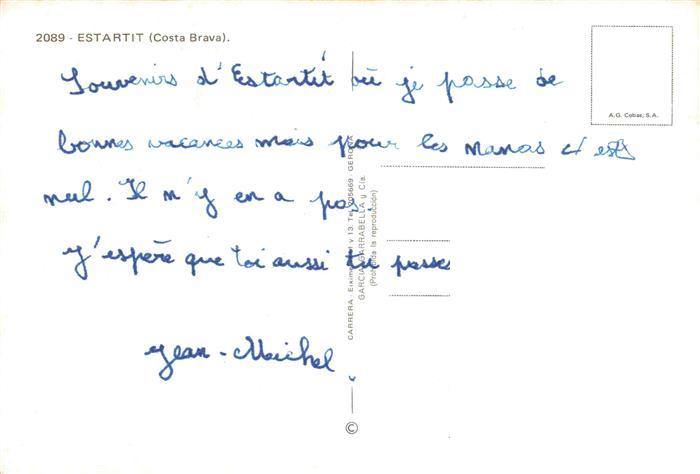 2089 - ESTARTIT (Costa Brava).
A.G. Cobas, S.A.
Souvenirs d'Estartit où je passe de
bonnes vacances mais pour les nanas c'est
nul. Il n'y en a pas.
J'espère que toi aussi tu passe
Jean-Michel
GARCIA GARRABELLA y Cía.
(Prohibida la reproducción)
©